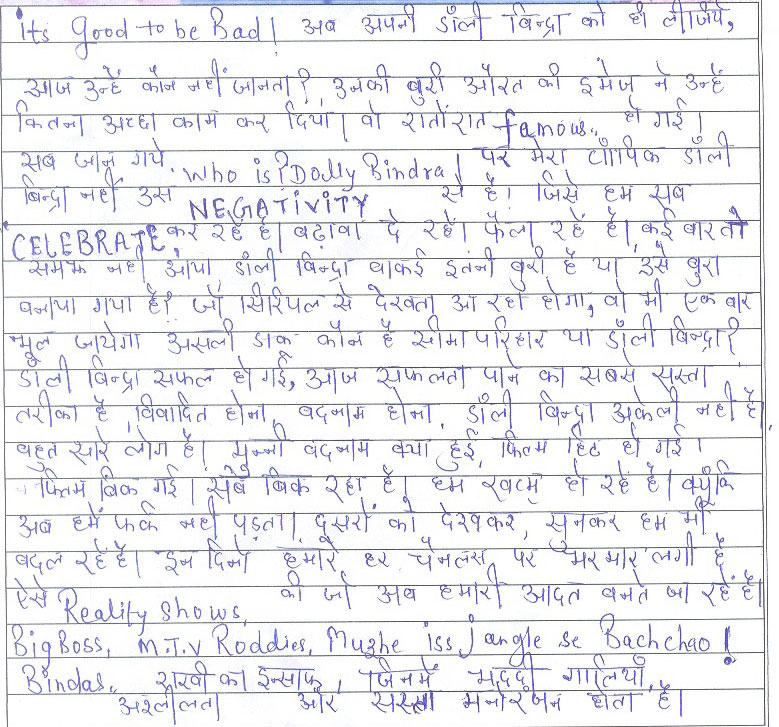 its good to be Bad! अब अपनी डॉली बिन्द्रा को ही लीजिये,
आज उन्हें कौन नहीं जानता? उनकी बुरी औरत की इमेज ने उन्हें
कितना अच्छा काम कर दिया। वो रातोंरात famous.. हो गई।
सब जान गये, Who is Dolly Bindra! पर मेरा टॉपिक डॉली
बिन्द्रा नहीं उस NEGATIVITY से है। जिसे हम सब
CELEBRATE, कर रहें है। बढ़ावा दे रहें। फैला रहें है। कई बार तो
समझ नहीं आया, डॉली बिन्द्रा वाकई इतनी बुरी है या उसे बुरा
बनाया गया है? जो सिरियल से देखता आ रहा होगा, वो भी एक बार
भूल जायेगा असली डाकू कौन है सीमा परिहार या डॉली बिन्द्रा?
डॉली बिन्द्रा सफल हो गई, आज सफलता पाने का सबसे सस्ता
तरीका है, विवादित होना, बदनाम होना, डॉली बिन्द्रा अकेली नहीं है,
बहुत सारे लोग है। मुन्नी बदनाम क्या हुई, फिल्म हिट हो गई।
फिल्म बिक गई। सब बिक रहा है। हम खत्म हो रहें है। क्यूँकि
अब हमें फर्क नहीं पड़ता। दूसरों को देखकर, सुनकर हम भी
बदल रहें है। इन दिनों हमारे हर चैनलस पर भरमार लगी है
ऐसे Reality shows, की जो अब हमारी आदत बनते जा रहें है।
Big Boss, M.T.V Roddies, Mujhe iss jangle se Bachchao!
Bindas.. राखी का इन्साफ, जिनमें भद्दी गालियाँ,
अश्लीलता और सस्ता मनोरंजन होता है।